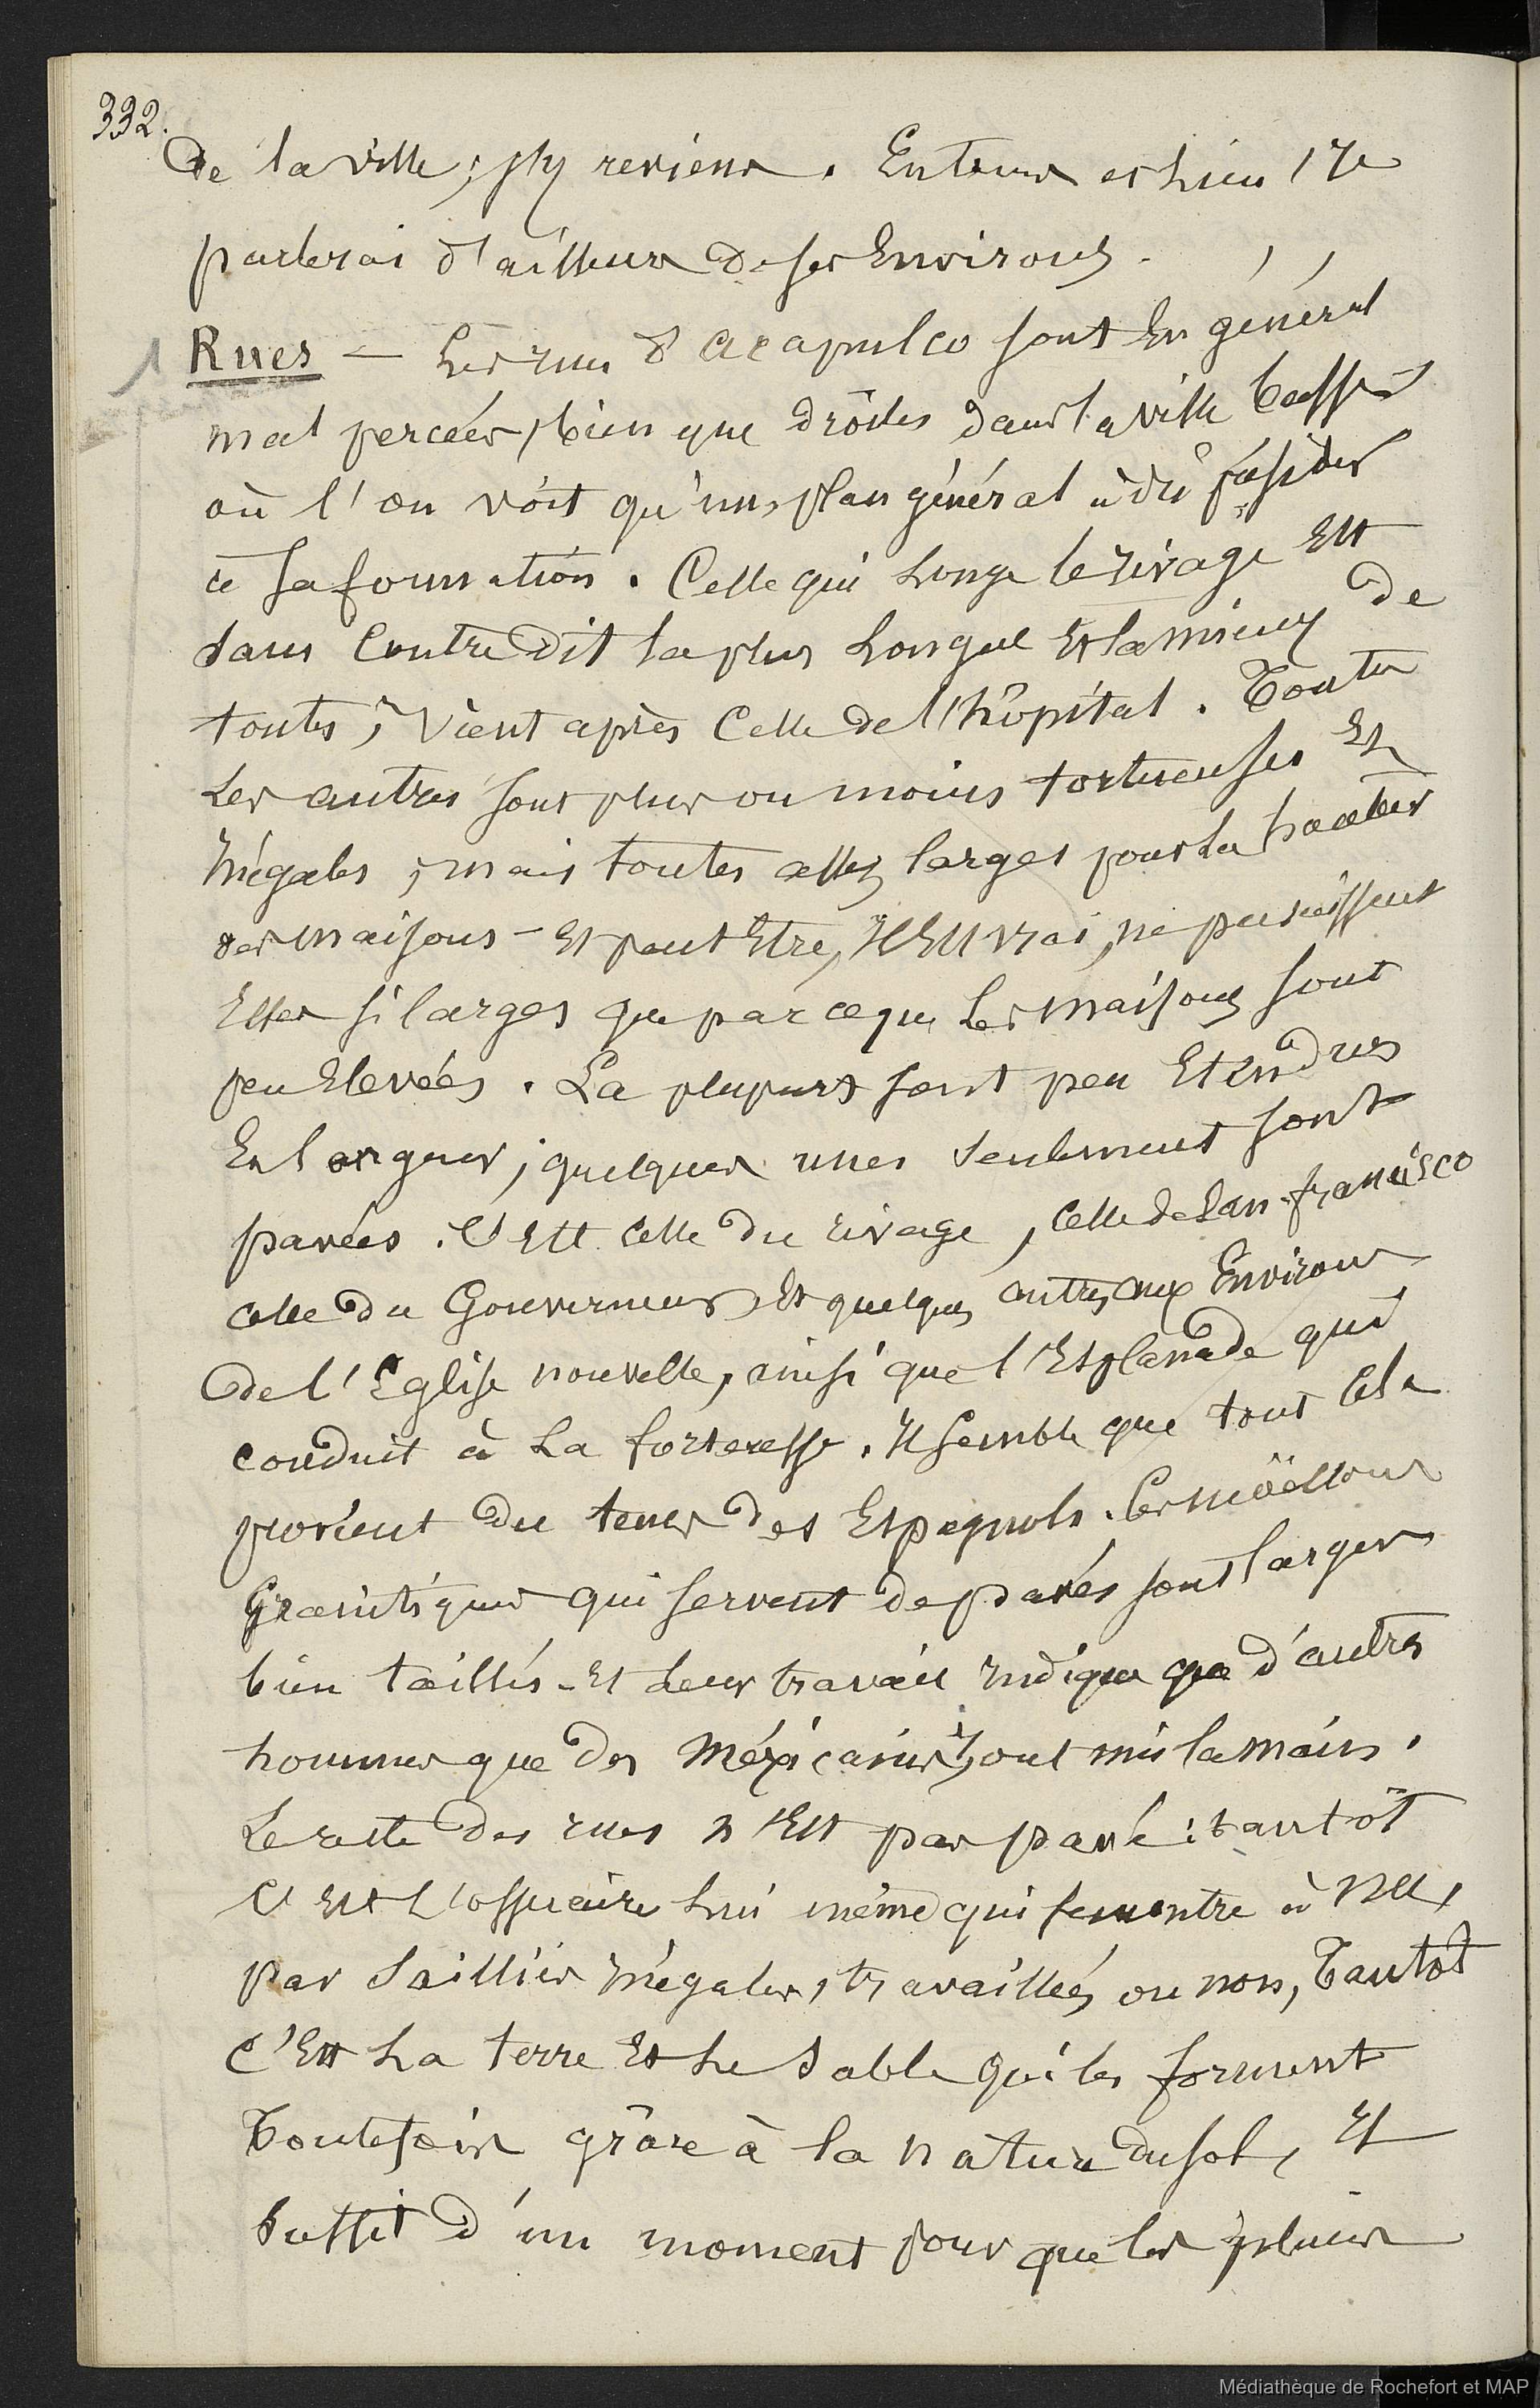 332.
de la ville ; j'y reviens. En temps et lieu, je
parlerai d'ailleurs de ses Environs.
Rues — Les rues d'acapulco sont En général
mal percées, bien que droites dans la ville basse
où l'on voit qu'un plan général a dû présider
à sa formation. Celle qui longe le rivage Est
sans Contredit la plus longue Et la mieux de
toutes ; vient après Celle de l'hôpital. Toutes
les autres sont plus ou moins tortueuses Et
Inégales ; mais toutes assez larges pour la hauteur
des maisons – Et peut Etre, Il Est vrai, ne paraissent
Elles si larges que parce que les maisons sont
peu Elevées. La plupart sont peu Etendues
En longueur ; quelques unes seulement sont
pavées. C'Est celle du rivage, celle de San-francisco
celle du Gouverneur Et quelques autres aux Environs
de l'Eglise nouvelle, ainsi que l'Esplanade qui
conduit à la forteresse. Il semble que tout cela
provient du tems des Espagnols. Ces moëllons
Granitiques qui servent de pavés sont larges
bien taillés – Et leur travail Indique que d'autres
hommes que des Méxicains y ont mis la main.
Le reste des rues n'Est pas pavé : tantôt
C'Est l'ossuaire lui même qui se montre à nu,
par saillies Inégales, travaillées ou non, Tantôt
C'Est la terre Et le sable qui les forment
Toutefois grâce à la nature du sol, Il
suffit d'un moment pour que les pluies
Médiathèque de Rochefort et MAP